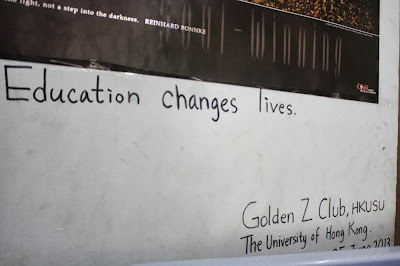 light, not a step into the darkness. REINHARD BONNKE
- winning
Education changes lives.
Golden Z Club, HKUSU
The University of Hong Kong.
June 2013